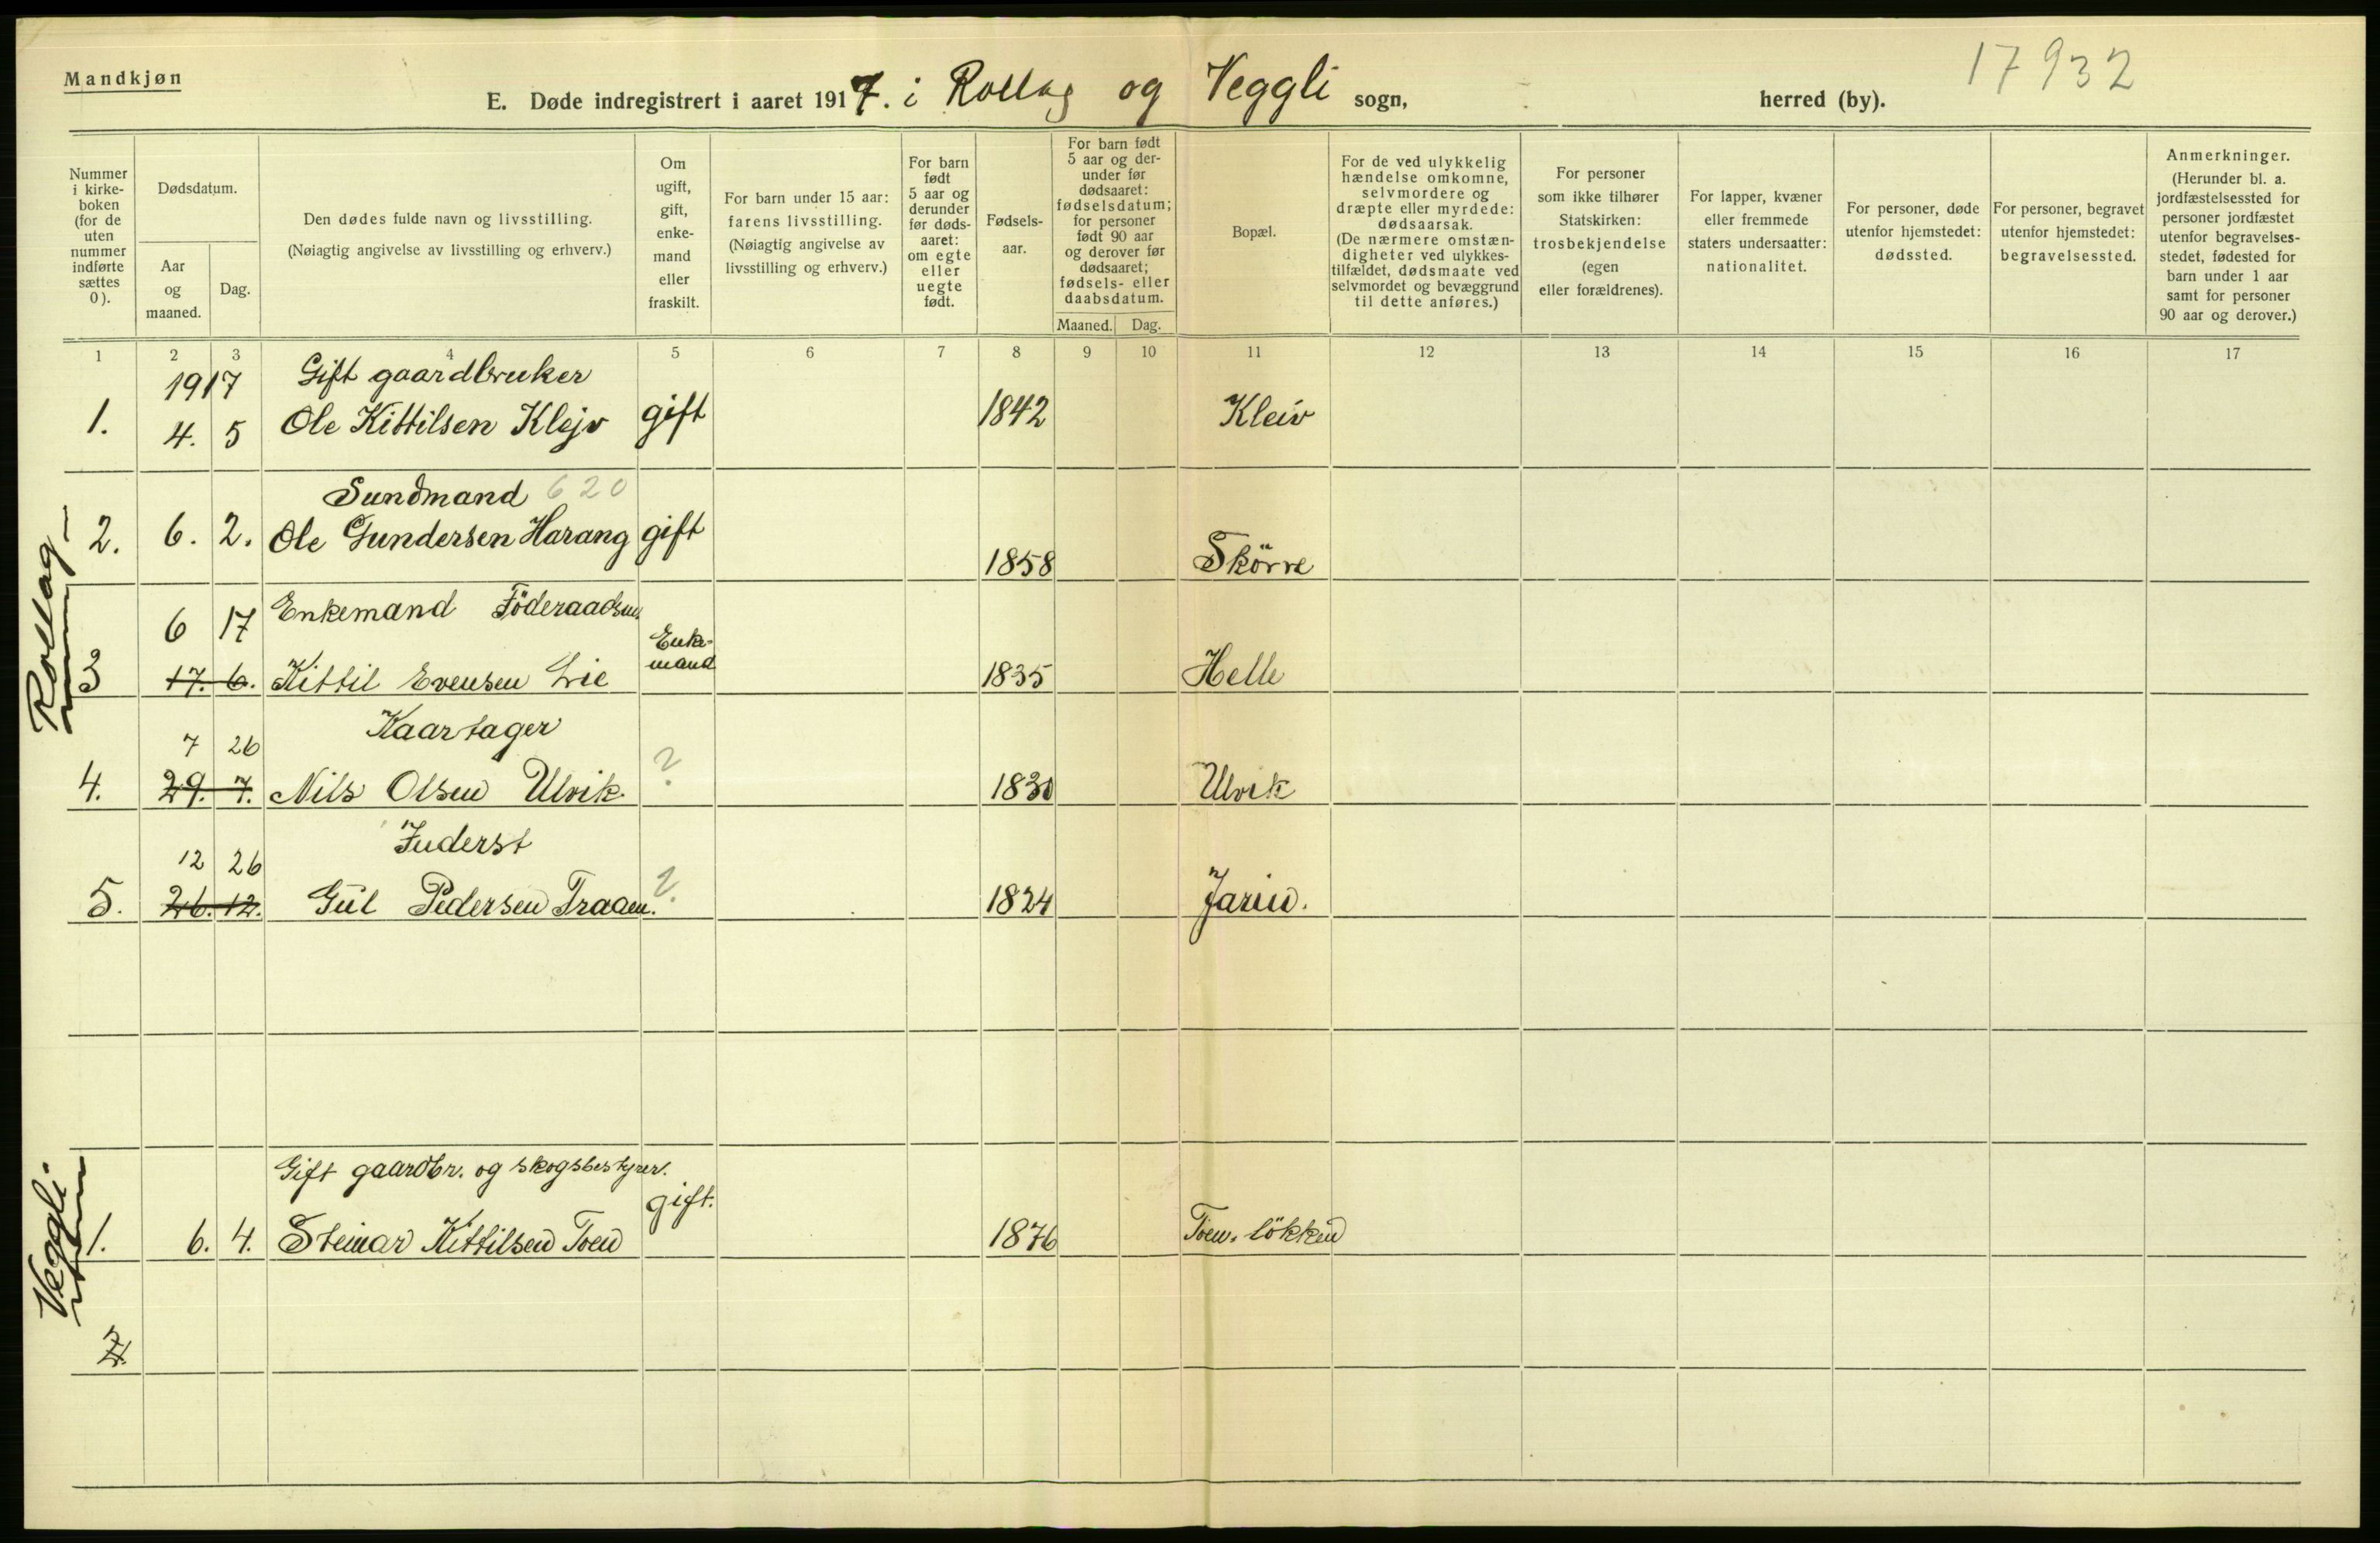 Mandkjøn
17932
E. Døde indregistrert i aaret 1917. i Rollag og Veggli sogn, herred (by).
Nummer i kirke-boken (for de uten nummer indførte sættes 0).
Dødsdatum.
Aar og maaned.
Dag.
Den dødes fulde navn og livsstilling.
(Nøiagtig angivelse av livsstilling og erhverv.)
Om ugift, gift, enke-mand eller fraskilt.
For barn under 15 aar: farens livsstilling. (Nøiagtig angivelse av livsstilling og erhverv.)
For barn født 5 aar og derunder før døds-aaret: om egte eller uegte født.
Fødsels-aar.
For barn født 5 aar og der-under før dødsaaret: fødselsdatum; for personer født 90 aar og derover før dødsaaret; fødsels- eller daabsdatum.
Maaned. Dag.
Bopæl.
For de ved ulykkelig hændelse omkomne, selvmordere og dræpte eller myrdede: dødsaarsak. (De nærmere omstæn-digheter ved ulykkes-tilfældet, dødsmaate ved selvmordet og bevæggrund til dette anføres.)
For personer som ikke tilhører Statskirken: trosbekjendelse (egen eller forældrenes).
For lapper, kvæner eller fremmede staters undersaatter: nationalitet.
For personer, døde utenfor hjemstedet: dødssted.
For personer, begravet utenfor hjemstedet: begravelsessted.
Anmerkninger. (Herunder bl. a. jordfæstelsessted for personer jordfæstet utenfor begravelses-stedet, fødested for barn under 1 aar samt for personer 90 aar og derover.)
1 2 3 4 5 6 7 8 9 10 11 12 13 14 15 16 17
Rollag
1917 Gift gaardbruker
1. 4. 5 Ole Kittilsen Klejv gift 1842 Kleiv
Sundmand 620
2. 6. 2. Ole Gundersen Harang gift 1858 Skörre
6 17 Enkemand Föderaadsm.
3 17. 6. Kittil Evensen Lie Enke-mand 1835 Helle
7 26 Kaartager
4. 29. 7. Nils Olsen Ulvik. ? 1830 Ulvik
12 26 Inderst
5. 26. 12. Gul Pedersen Traaen. ? 1824 Jarin.
Veggli
Gift gaardbr. og skogsbestyrer.
1. 6. 4. Steinar Kittilsen Toen gift. 1876 Toen. lökken
2.